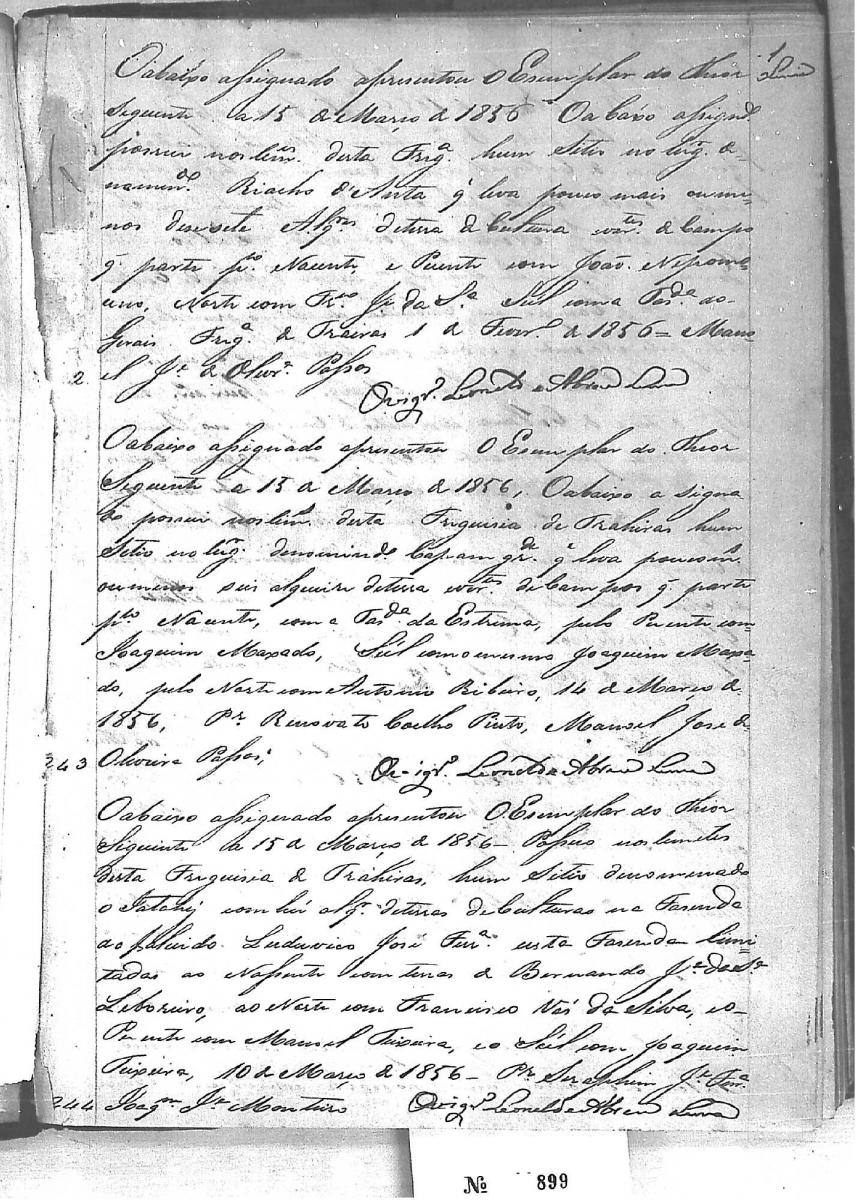 O abaixo assignado apresentou O Exemplar do Theor
Seguente a 15 de Março de 1856 O abaixo assignd.
possue nos lem. desta Frigª. hum Sitio no lug. de-
namin.do Riacho d'Anta q̃ leva pouco mais ou me-
nos desesete Alq.res de terra de Cultura e vert.es de Campo
q̃ parte p.lo Nacente, e Puente com João Nepomo
ceno, Norte com Fr.co J.e da S.ª Sul com a Fasd.ª dos
Gerais Frigª. de Traíras 1 de Fever.º de 1856 = Mano
el J.e de Olivr.ª Passos
2
O vigr.º Leonel de Abreu Lima
O abaixo assignado apresentou O Exemplar do Theor
Seguente a 15 de Março de 1856, O abaixo a signa
do possue nos lem. desta Friguisia de Trahiras hum
Sitio no lug. denomind.º Capam gr.de q̃ leva pouco m.
ou menos seis alqueire de terra e vert.es de Campos q̃ parte
p.lo Nacente, com a Fasd.ª da Estrema, pelo Puente com
Joaquim Maxado, Sul com o mesmo Joaquim Maxa
do, pelo Norte com Antonio Ribeiro, 14 de Março de
1856, P.r Renovato Coelho Pinto, Manoel José de
243 Oliveira Passos;
O vigr.º Leonel de Abreu Lima
O abaixo assignado apresentou O Exemplar do Theor
Siguente a 15 de Março de 1856 - Possuo nos lemetes
desta Friguisia de Trahiras, hum Sitio denomenado
o Jatahy com alq. de terras de Culturas na Fasenda
do falecido Ludovico José Ferr.ª esta Fasenda limi
tadas ao Nassente com terras de Bernardo J.e da S.ª
Leboreiro, ao Norte com Francisco Vás da Silva, eo-
Puente com Manoel Teixeira, e o Sul com Joaquim
Teixeira, 10 de Março de 1856 - P.r Seraphim J.e Ferr.ª
244 Joaq.m J.e Monteiro O vigr.º Leonel de Abreu Lima
Nº 899